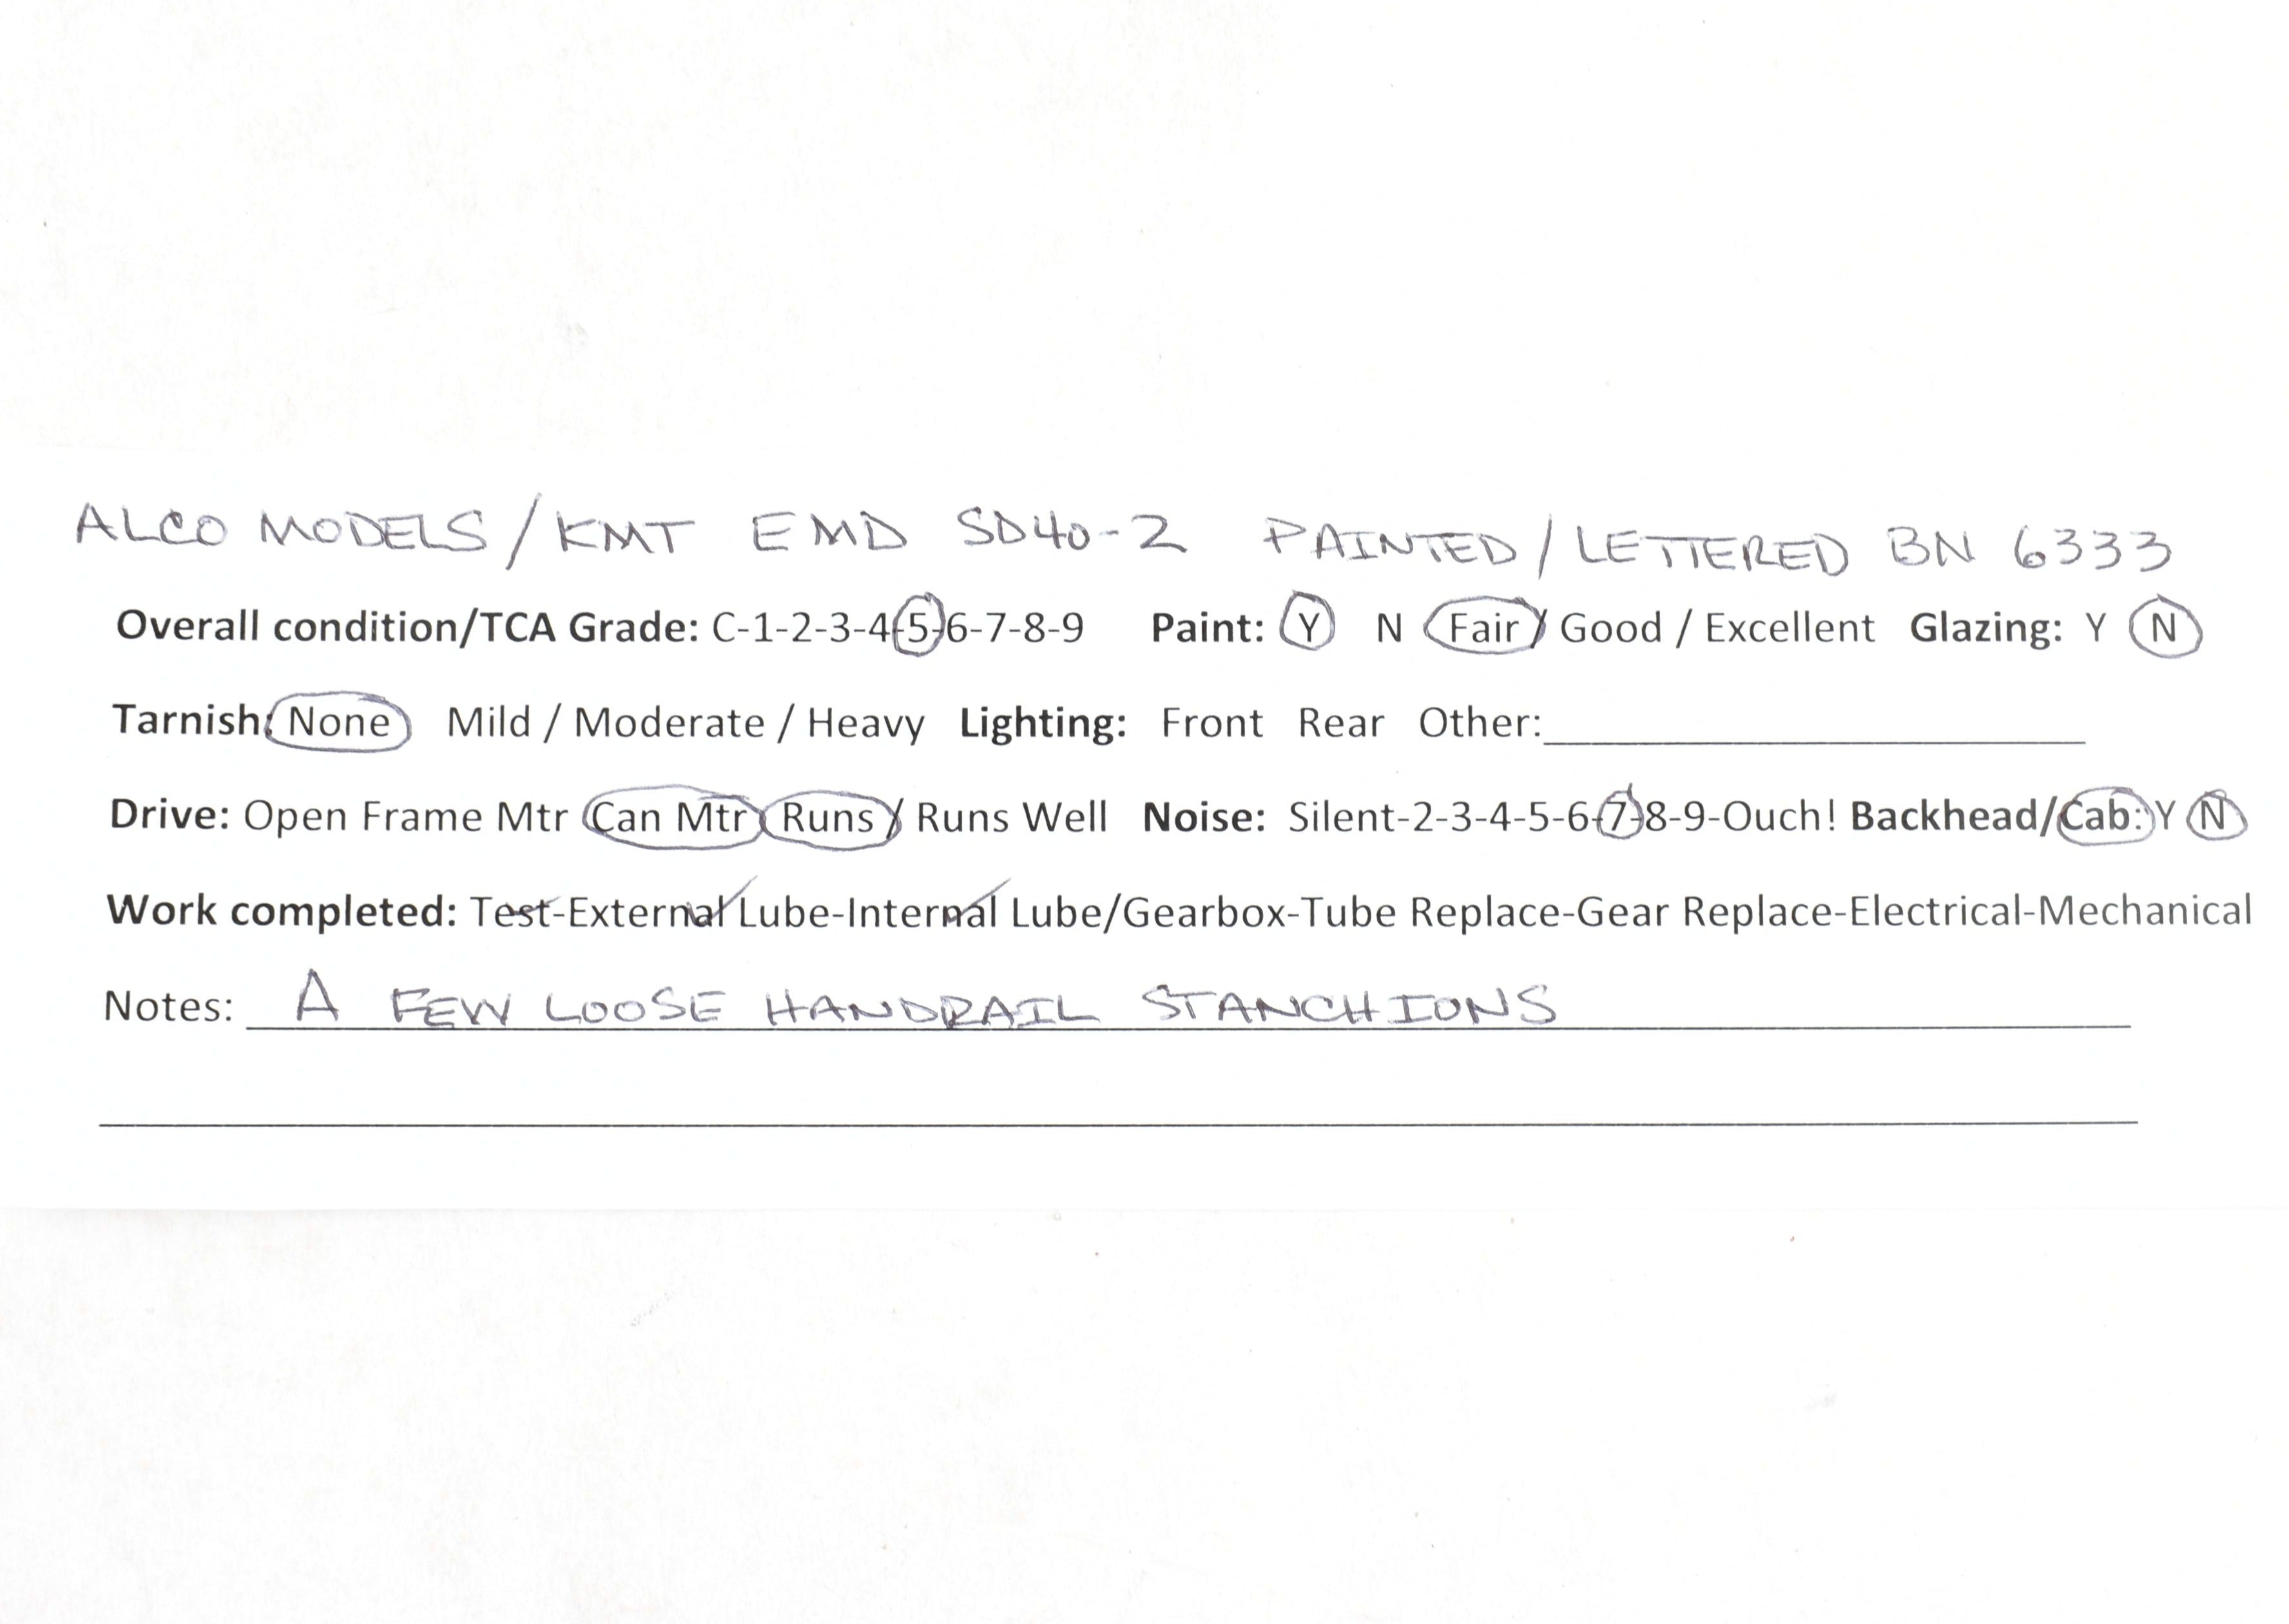 ALCO MODELS/KMT EMD SD40-2 PAINTED/LETTERED BN 6333
Overall condition/TCA Grade: C-1-2-3-4-5-6-7-8-9 Paint: Y N Fair / Good / Excellent Glazing: Y N
Tarnish: None Mild / Moderate / Heavy Lighting: Front Rear Other:
Drive: Open Frame Mtr Can Mtr Runs / Runs Well Noise: Silent-2-3-4-5-6-7-8-9-Ouch! Backhead/Cab: Y N
Work completed: Test-External Lube-Internal Lube/Gearbox-Tube Replace-Gear Replace-Electrical-Mechanical
Notes: A FEW LOOSE HANDRAIL STANCHIONS